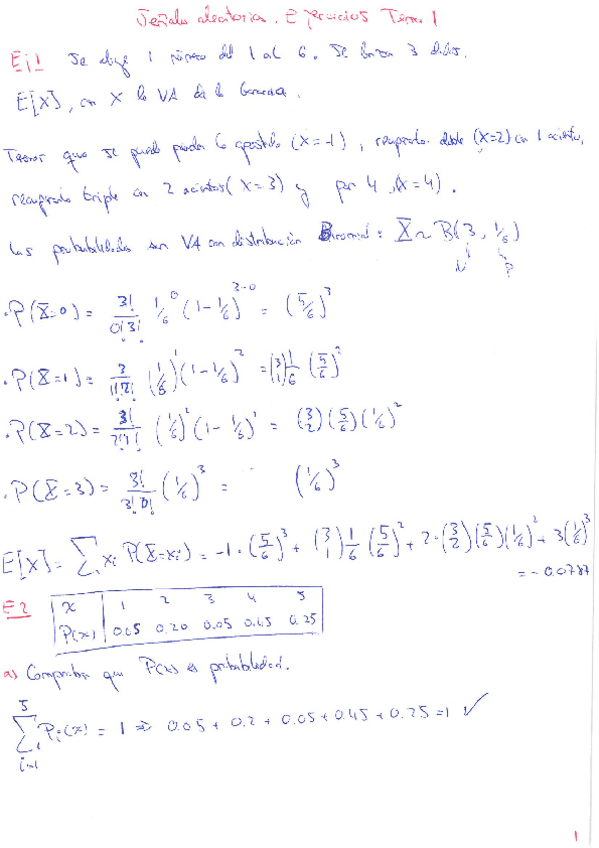 Señales aleatorias. Ejercicios Tema 1
Ej 1 Se elige 1 número del 1 al 6. Se lanzan 3 dados.
E[X], con X la VA de la ganancia.
Tenemos que se puede perder lo apostado (X=-1), recuperado doble (X=2) con 1 acierto,
recuperado triple con 2 aciertos (X=3) y por 4 (X=4).
Las probabilidades son VA con distribución Binomial: X ~ B(3, 1/6)
N P
· P(X=0) = 3!/(0!3!) 1/6^0 (1-1/6)^(3-0) = (5/6)^3
· P(X=1) = 3/(1!2!) (1/6)^1 (1-1/6)^2 = (3 1) 1/6 (5/6)^2
· P(X=2) = 3!/(2!1!) (1/6)^2 (1-1/6)^1 = (3 2) (5/6) (1/6)^2
· P(X=3) = 3!/(3!0!) (1/6)^3 = (1/6)^3
E[X] = ∑ xi P(X=xi) = -1·(5/6)^3 + (3 1) 1/6 (5/6)^2 + 2·(3 2) (5/6) (1/6)^2 + 3(1/6)^3
= -0.0787
E2 x 1 2 3 4 5
P(x) 0.05 0.20 0.05 0.45 0.25
a) Comprobar que P(x) es probabilidad.
5
∑ Pi(x) = 1 ⇒ 0.05 + 0.2 + 0.05 + 0.45 + 0.25 = 1 ✓
i=1
1